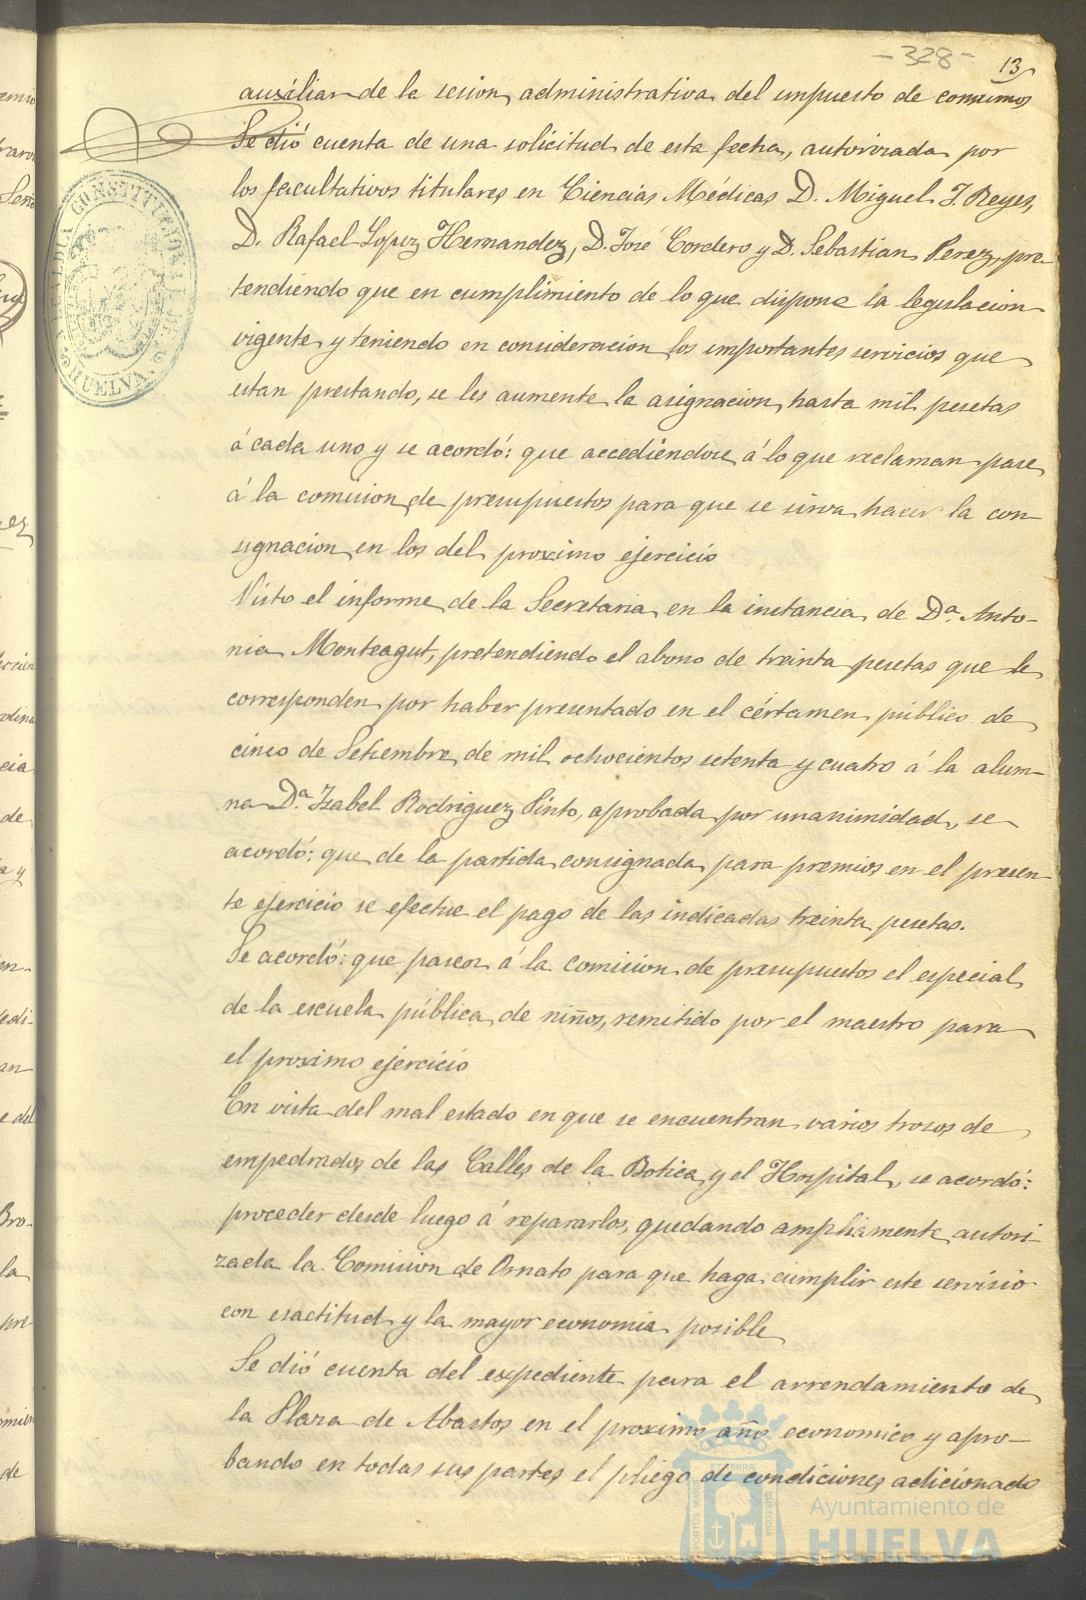 -328-
13
auxiliar de la sesion administrativa del impuesto de consumos
Se dió cuenta de una solicitud de esta fecha, autorizada por
los facultativos titulares en Ciencias Médicas D. Miguel J. Reyes,
D. Rafael Lopez Hernandez, D. José Cordero y D. Sebastian Perez, pre-
tendiendo que en cumplimiento de lo que dispone la legislacion
vigente y teniendo en consideracion los importantes servicios que
estan prestando, se les aumente la asignacion hasta mil pesetas
á cada uno y se acordó: que accediéndose á lo que reclaman pase
á la comision de presupuestos para que se sirva hacer la con-
signacion en los del proximo ejercicio
Visto el informe de la Secretaria en la instancia de Dª. Anto-
nia Monteagut, pretendiendo el abono de treinta pesetas que le
corresponden por haber presentado en el cértamen público de
cinco de Setiembre de mil ochocientos setenta y cuatro á la alum-
na Dª. Isabel Rodriguez Pinto, aprobada por unanimidad, se
acordó: que de la partida consignada para premios en el presen-
te ejercicio se efectue el pago de las indicadas treinta pesetas.
Se acordó: que pasen á la comision de presupuestos el especial
de la escuela pública de niños, remitido por el maestro para
el proximo ejercicio
En vista del mal estado en que se encuentran varios trozos de
empedrados de las Calles de la Botica y el Hospital, se acordó:
proceder desde luego á repararlos, quedando ampliamente autori-
zada la Comision de Ornato para que haga cumplir este servicio
con esactitud y la mayor economia posible
Se dió cuenta del espediente para el arrendamiento de
la Plaza de Abastos en el proximo año economico y apro-
bando en todas sus partes el pliego de condiciones adicionado
ALCALDIA CONSTITUCIONAL DE HUELVA
PORTUS MARIS ET TERRÆ CUSTODIA
Ayuntamiento de
HUELVA